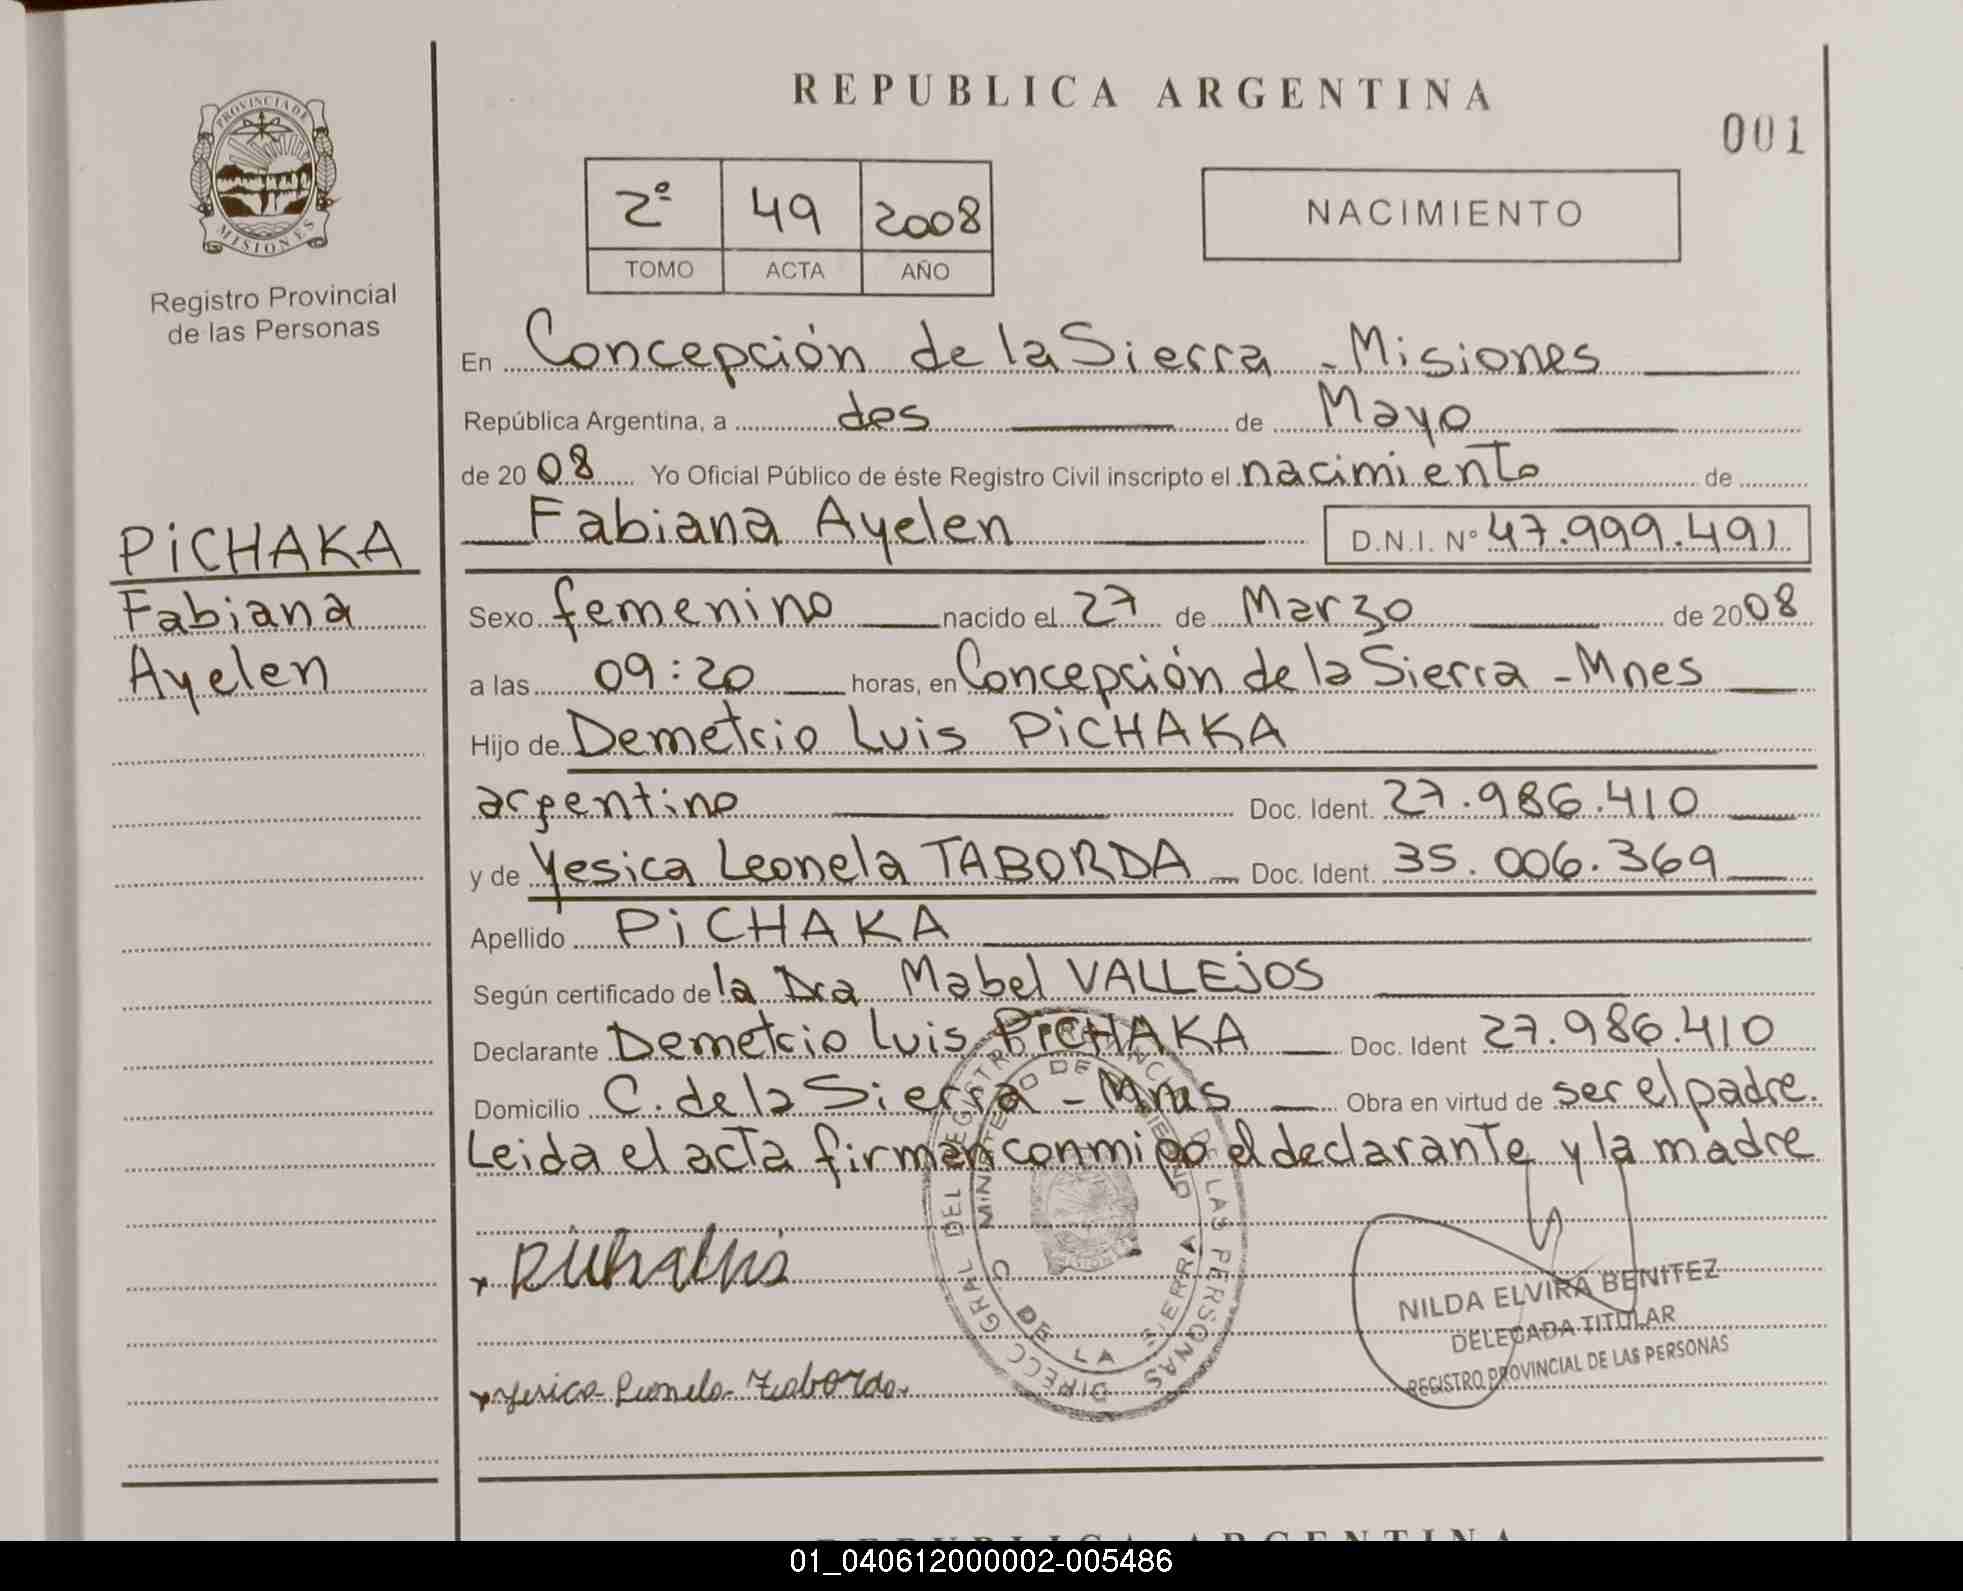 REPUBLICA ARGENTINA
001
PROVINCIA DE
MISIONES
Registro Provincial
de las Personas
2º 49 2008
TOMO ACTA AÑO
NACIMIENTO
En Concepción de la Sierra - Misiones
República Argentina, a dos de Mayo
de 20 08 Yo Oficial Público de éste Registro Civil inscripto el nacimiento de
Fabiana Ayelen D.N.I. Nº 47.999.491
PiCHAKA
Fabiana
Ayelen
Sexo femenino nacido el 27 de Marzo de 20 08
a las 09:20 horas, en Concepción de la Sierra - Mnes
Hijo de Demetrio Luis PiCHAKA
argentino Doc. Ident. 27.986.410
y de Yesica Leonela TABORDA Doc. Ident. 35.006.369
Apellido PiCHAKA
Según certificado de la Dra Mabel VALLEjOS
Declarante Demetrio Luis PiCHAKA Doc. Ident 27.986.410
Domicilio C. de la Sierra - Mnes Obra en virtud de ser el padre.
Leida el acta firman conmigo el declarante y la madre
Yesica Leonela Taborda
DIRECC GRAL DEL REGISTRO PROVINCIAL DE LAS PERSONAS
MINISTERIO DE
C. DE LA SIERRA
NILDA ELVIRA BENITEZ
DELEGADA TITULAR
REGISTRO PROVINCIAL DE LAS PERSONAS
REPUBLICA ARGENTINA
01_040612000002-005486